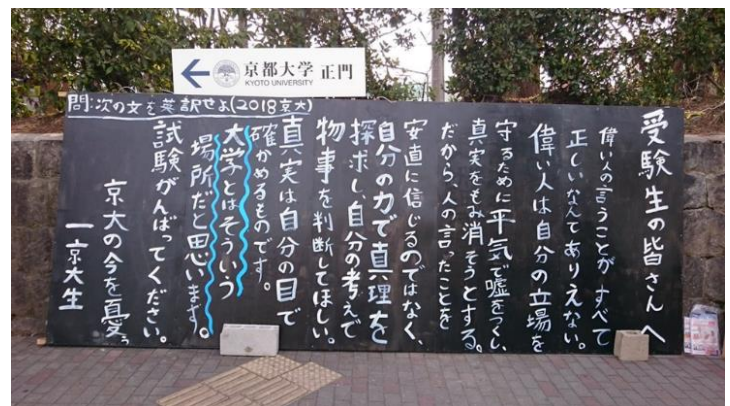 京都大学 正門
KYOTO UNIVERSITY
問:次の文を英訳せよ(2018京大)
受験生の皆さんへ
偉い人の言うことが すべて
正しいなんてありえない。
偉い人は自分の立場を
守るために平気で嘘をつくし、
真実をもみ消そうとする。
だから、人の言ったことを
安直に信じるのではなく、
自分の力で真理を
探求し自分の考えで
物事を判断してほしい。
真実は自分の目で
確かめるものです。
大学とはそういう
場所だと思います。
試験がんばってください。
京大の今を憂う
一京大生